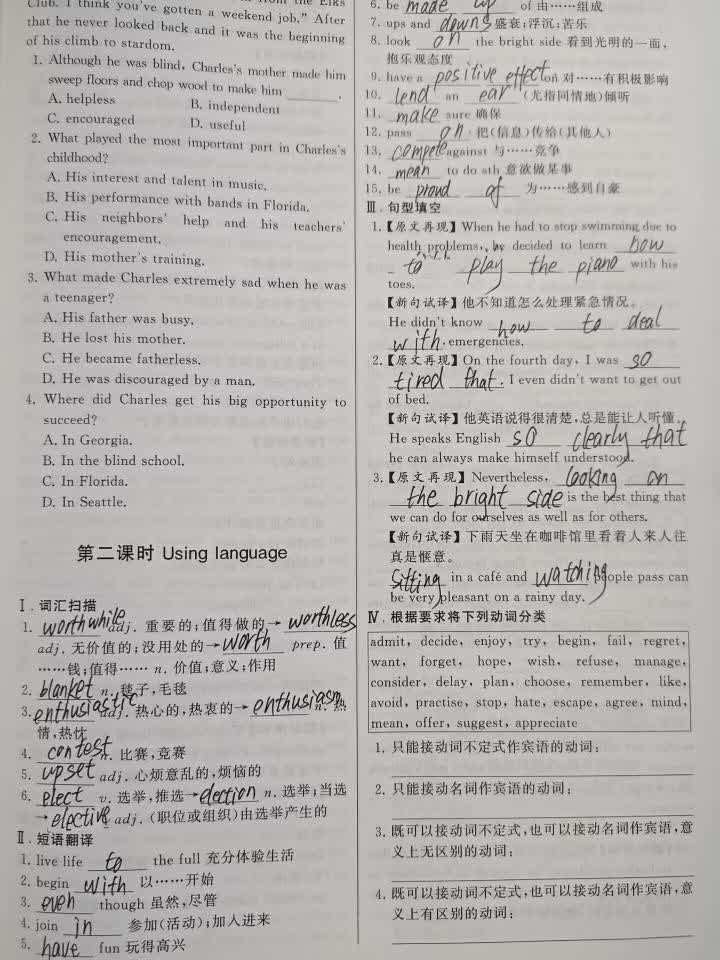 Club. I think you've gotten a weekend job." After
that he never looked back and it was the beginning
of his climb to stardom.
1. Although he was blind, Charles's mother made him
sweep floors and chop wood to make him ______.
A. helpless B. independent
C. encouraged D. useful
2. What played the most important part in Charles's
childhood?
A. His interest and talent in music.
B. His performance with bands in Florida.
C. His neighbors' help and his teachers'
encouragement.
D. His mother's training.
3. What made Charles extremely sad when he was
a teenager?
A. His father was busy.
B. He lost his mother.
C. He became fatherless.
D. He was discouraged by a man.
4. Where did Charles get his big opportunity to
succeed?
A. In Georgia.
B. In the blind school.
C. In Florida.
D. In Seattle.
第二课时 Using language
Ⅰ. 词汇扫描
1. worthwhile adj. 重要的;值得做的→ worthless
adj. 无价值的;没用处的→ worth prep. 值
……钱;值得…… n. 价值;意义;作用
2. blanket n. 毯子,毛毯
3. enthusiastic adj. 热心的,热衷的→ enthusiasm n. 热
情,热忱
4. contest n. 比赛,竞赛
5. upset adj. 心烦意乱的,烦恼的
6. elect v. 选举,推选→ election n. 选举;当选
→ elective adj. (职位或组织)由选举产生的
Ⅱ. 短语翻译
1. live life to the full 充分体验生活
2. begin with 以……开始
3. even though 虽然,尽管
4. join in 参加(活动);加入进来
5. have fun 玩得高兴
6. be made up of 由……组成
7. ups and downs 盛衰;浮沉;苦乐
8. look on the bright side 看到光明的一面,
抱乐观态度
9. have a positive effect on 对……有积极影响
10. lend an ear (尤指同情地)倾听
11. make sure 确保
12. pass on 把(信息)传给(其他人)
13. compete against 与……竞争
14. mean to do sth 意欲做某事
15. be proud of 为……感到自豪
Ⅲ. 句型填空
1.【原文再现】When he had to stop swimming due to
health problems, he decided to learn how
to play the piano with his
toes.
【新句试译】他不知道怎么处理紧急情况。
He didn't know how to deal
with emergencies.
2.【原文再现】On the fourth day, I was so
tired that I even didn't want to get out
of bed.
【新句试译】他英语说得很清楚,总是能让人听懂。
He speaks English so clearly that
he can always make himself understood.
3.【原文再现】Nevertheless, looking on
the bright side is the best thing that
we can do for ourselves as well as for others.
【新句试译】下雨天坐在咖啡馆里看着人来人往
真是惬意。
Sitting in a café and watching people pass can
be very pleasant on a rainy day.
Ⅳ. 根据要求将下列动词分类
admit, decide, enjoy, try, begin, fail, regret,
want, forget, hope, wish, refuse, manage,
consider, delay, plan, choose, remember, like,
avoid, practise, stop, hate, escape, agree, mind,
mean, offer, suggest, appreciate
1. 只能接动词不定式作宾语的动词:
2. 只能接动名词作宾语的动词:
3. 既可以接动词不定式,也可以接动名词作宾语,意
义上无区别的动词:
4. 既可以接动词不定式,也可以接动名词作宾语,意
义上有区别的动词: